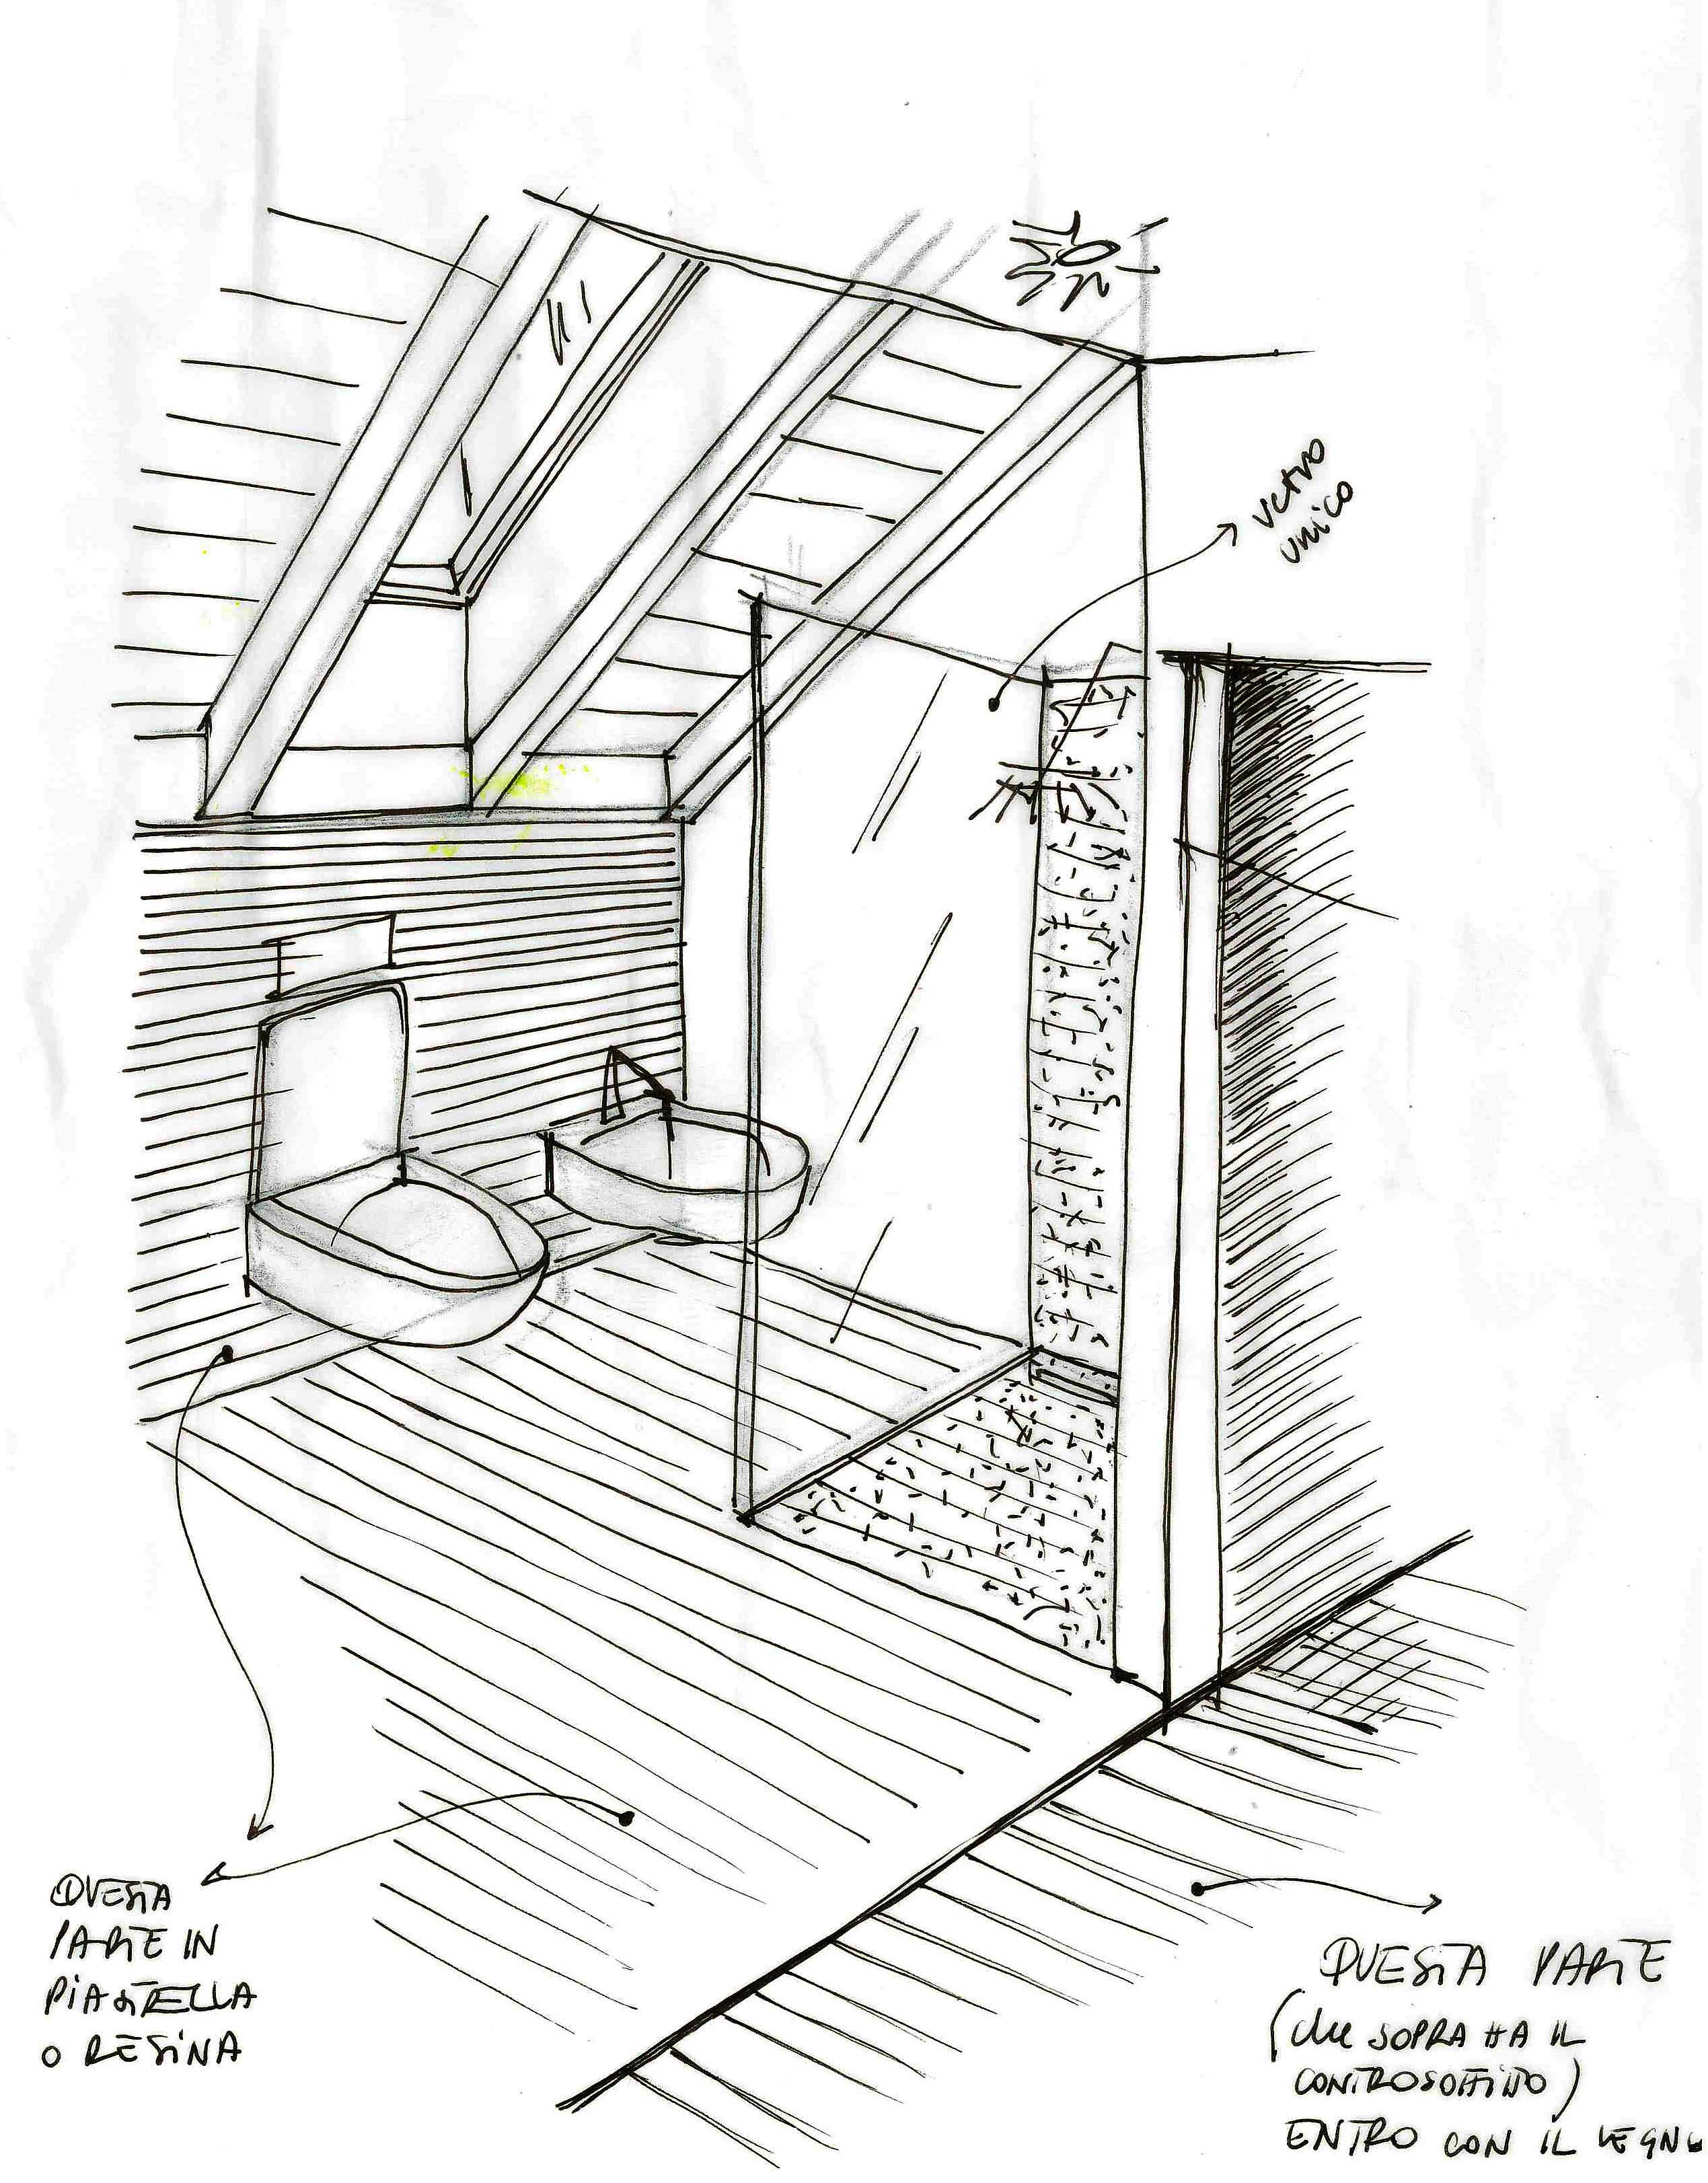 vetro
unico
QUESTA
PARTE IN
PIASTRELLA
O RESINA
QUESTA PARTE
(che SOPRA HA IL
CONTROSOFFITTO)
ENTRO CON IL LEGNO